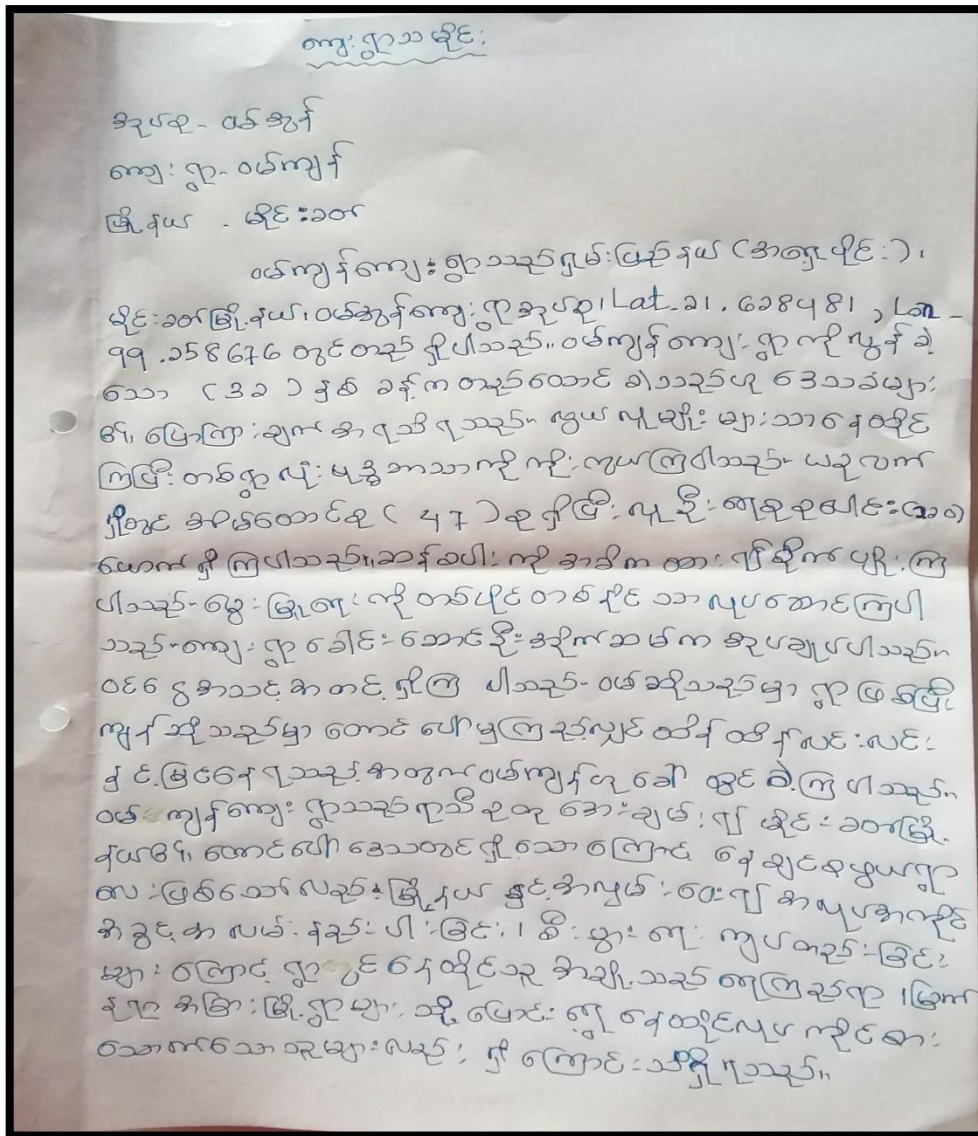 ကျေးရွာသမိုင်း
အုပ်စု - ဝမ်အွန်
ကျေးရွာ - ဝမ်ကျန်
မြို့နယ် - မိုင်းခတ်
ဝမ်ကျန်ကျေးရွာသည်ရှမ်းပြည်နယ် (အရှေ့ပိုင်း)၊
မိုင်းခတ်မြို့နယ်၊ ဝမ်အွန်ကျေးရွာအုပ်စု၊ Lat-21.628481, Lon-
99.258676 တွင်တည်ရှိပါသည်။ ဝမ်ကျန်ကျေးရွာကိုလွန်ခဲ့
သော (၃၁) နှစ်ခန့်ကတည်ထောင်ခဲ့သည်ဟု ဒေသခံများ
၏ ပြောကြားချက်အရသိရသည်။ လွယ်လူမျိုးများသာနေထိုင်
ကြပြီး တစ်ရွာလုံးဗုဒ္ဓဘာသာကိုကိုးကွယ်ကြပါသည်။ ယခုလက်
ရှိတွင် အိမ်ထောင်စု (47) စုရှိပြီး လူဦးရေစုစုပေါင်း
ယောက်ရှိကြပါသည်။ ဆန်စပါးကိုအဓိကထား၍စိုက်ပျိုးကြ
ပါသည်။ မွေးမြူရေးကိုတစ်ပိုင်တစ်နိုင်သာလုပ်ဆောင်ကြပါ
သည်။ ကျေးရွာခေါင်းဆောင်ဦးအိုက်ဆမ်ကအုပ်ချုပ်ပါသည်။
ဝင်ငွေအသင့်အတင့်ရှိကြပါသည်။ ဝမ်ဆိုသည်မှာ ရွာဖြစ်ပြီး
ကျန်ဆိုသည်မှာ တောင်ပေါ်မှကြည့်လျှင် ထိန်ထိန်လင်းလင်း
နှင့်မြင်နေရသည့်အတွက်ဝမ်ကျန်ဟု ခေါ်တွင်ခဲ့ကြပါသည်။
ဝမ်ကျန်ကျေးရွာသည်ရာသီဥတုအေးချမ်း၍ မိုင်းခတ်မြို့
နယ်၏ တောင်ပေါ်ဒေသတွင်ရှိသောကြောင့် နေချင်စဖွယ်ရွာ
လေးဖြစ်သော်လည်း မြို့နယ်နှင့်အလှမ်းဝေး၍ အလုပ်အကိုင်
အခွင့်အလမ်းနည်းပါးခြင်း၊ စီးပွားရေးကျပ်တည်းခြင်း
များကြောင့် ရွာတွင်နေထိုင်သူအချို့သည် ရေကြည်ရာ မြက်
နုရာ အခြားမြို့ရွာများသို့ ပြောင်းရွှေ့နေထိုင်လုပ်ကိုင်စား
သောက်သောသူများလည်းရှိကြောင်းသိရှိရသည်။